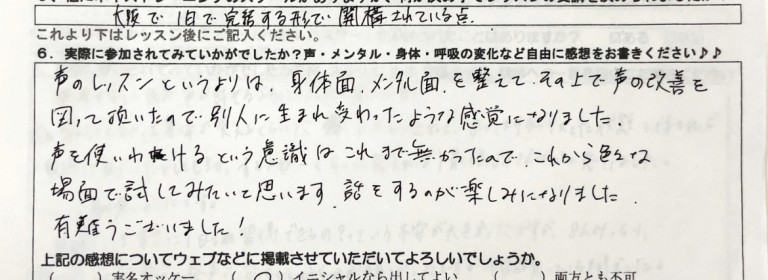 大阪で1日で完結する形で開構されている点.
これより下はレッスン後にご記入ください。
6．実際に参加されてみていかがでしたか？声・メンタル・身体・呼吸の変化など自由に感想をお書きください♪♪
声のレッスンというよりは、身体面、メンタル面、を整えて、その上で声の改善を
図って頂いたので別人に生まれ変わったような感覚になりました.
声を使いわける という意識は これまで無かったので、これから色々な
場面で試してみたいと思います. 話をするのが楽しみになりました.
有難うございました!
上記の感想についてウェブなどに掲載させていただいてよろしいでしょうか。
（　　）実名オッケー　（　○）イニシャルなら出してよい　（　　）両方とも不可